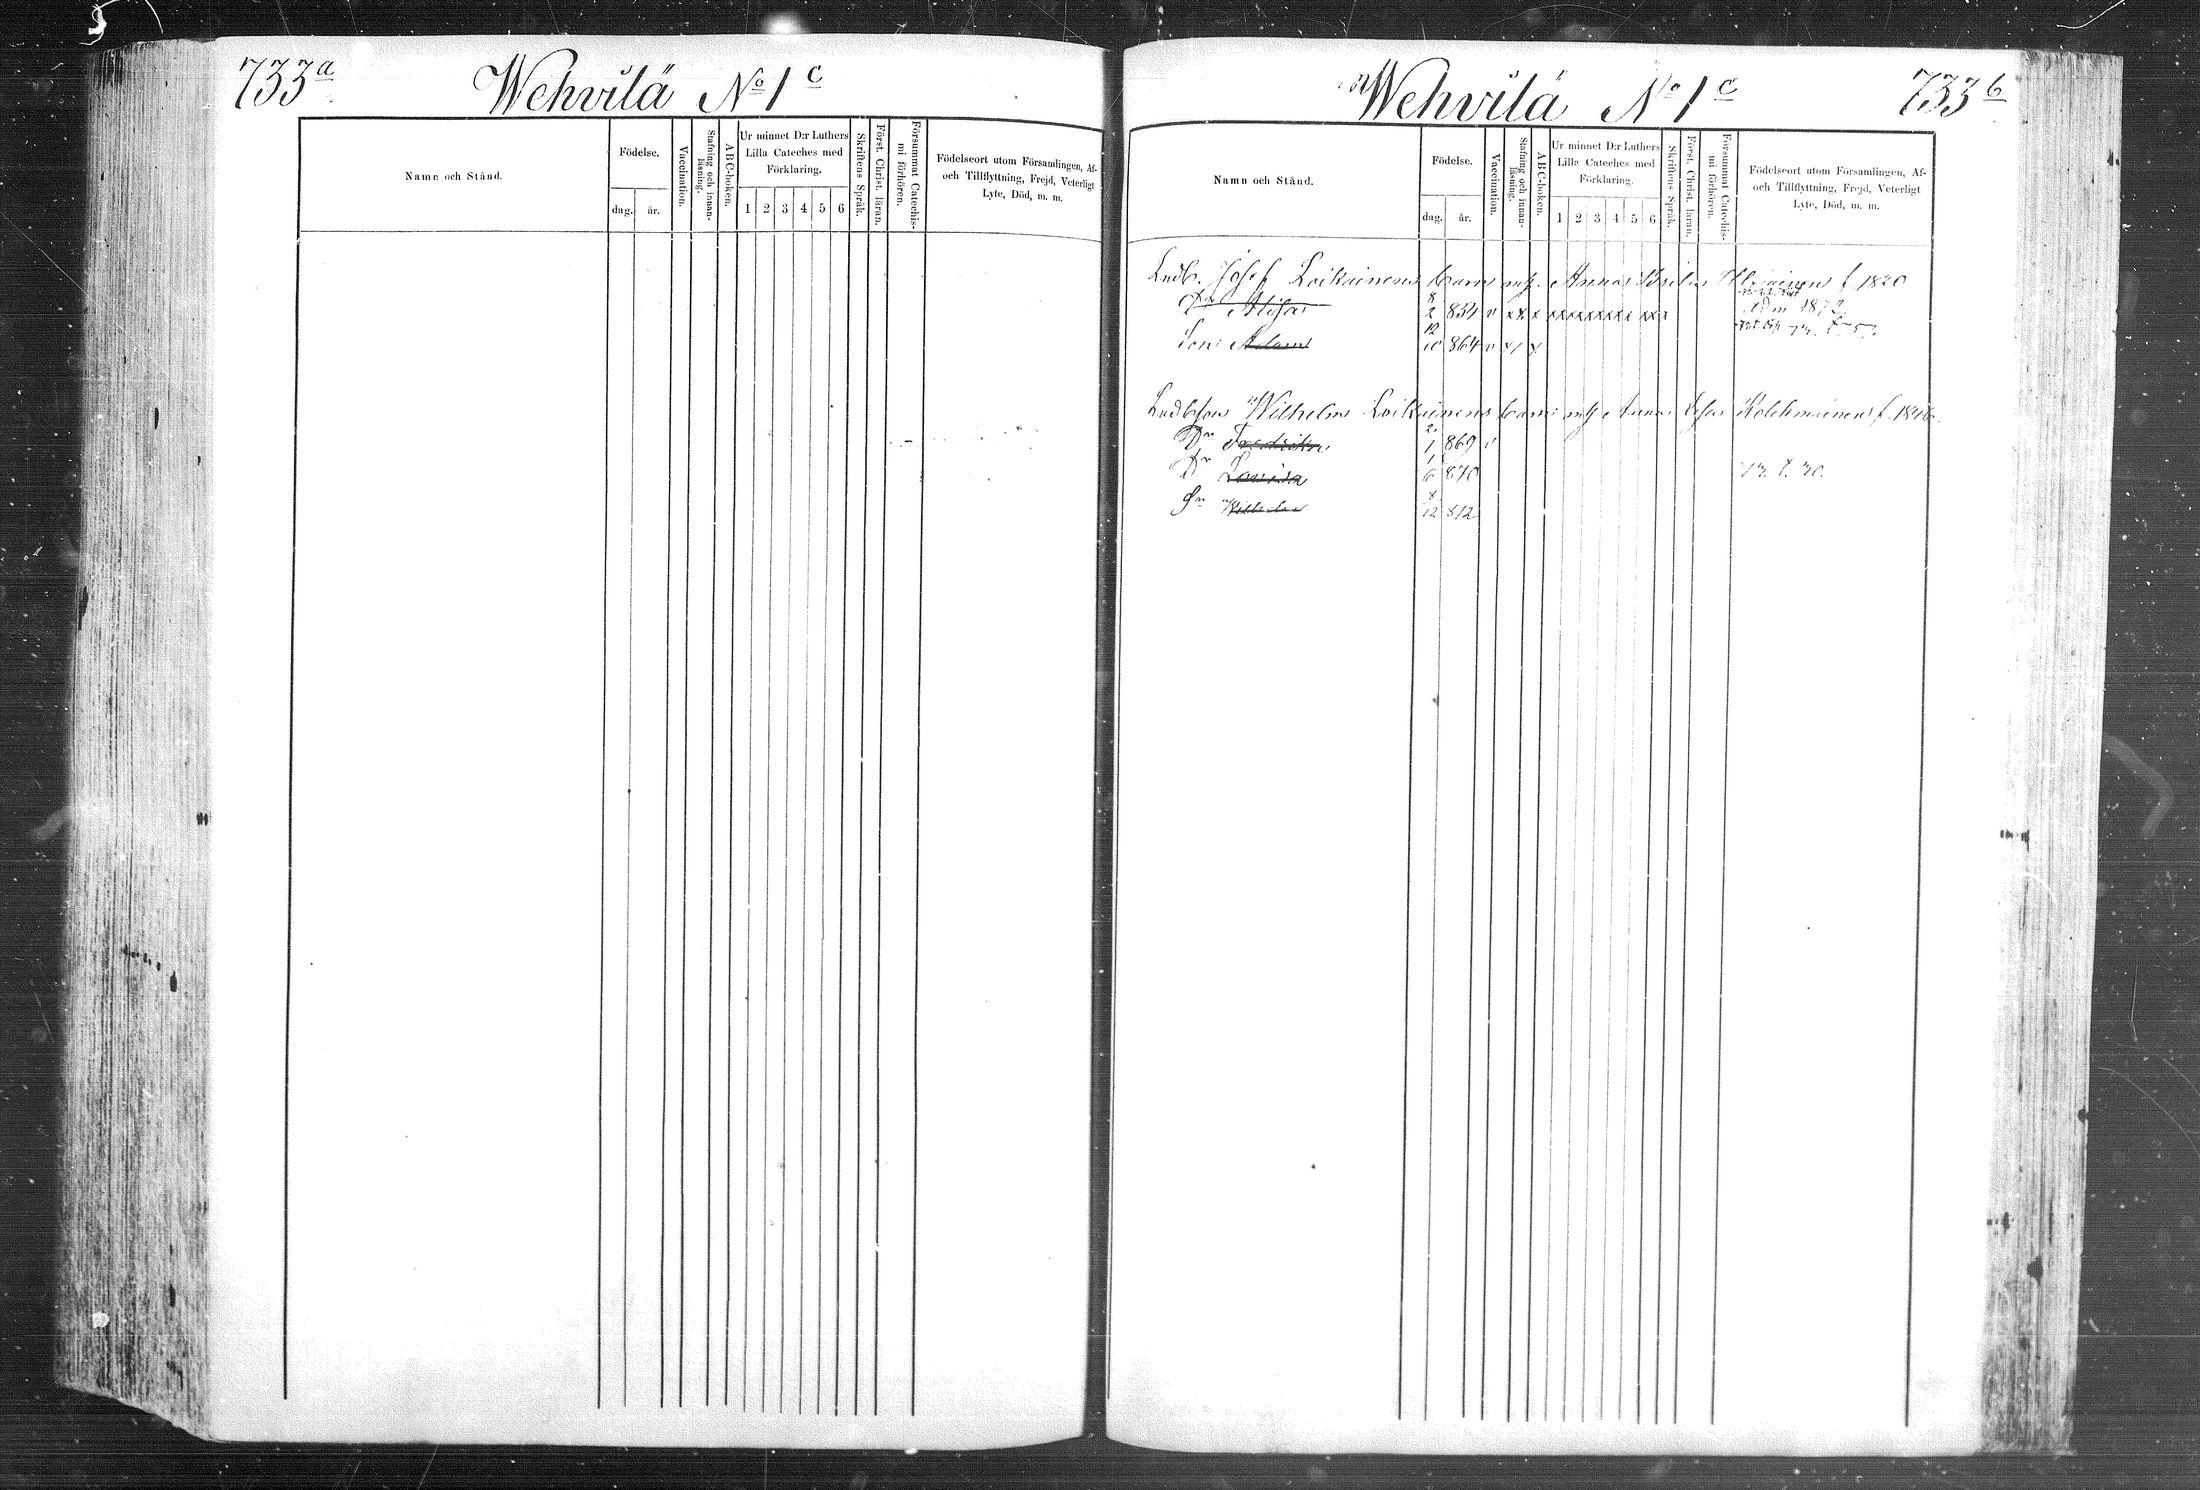 733a
Wehvilä No 1 c
Namn och Stånd.
Födelse.
dag.
år.
Vaccination.
Stafning och innan-
läsning.
ABC-boken.
Ur minnet D:r Luthers
Lilla Cateches med
Förklaring.
1 2 3 4 5 6
Skriftens Språk.
Först. Christ. läran.
Försummat Catechis-
mi förhören.
Födelseort utom Församlingen, Af-
och Tillflyttning, Frejd, Veterligt
Lyte, Död, m. m.
Wehvilä No 1 c
733b
Namn och Stånd.
Födelse.
dag.
år.
Vaccination.
Stafning och innan-
läsning.
ABC-boken.
Ur minnet D:r Luthers
Lilla Cateches med
Förklaring.
1 2 3 4 5 6
Skriftens Språk.
Först. Christ. läran.
Försummat Catechis-
mi förhören.
Födelseort utom Församlingen, Af-
och Tillflyttning, Frejd, Veterligt
Lyte, Död, m. m.
Josef Loikainens barn m Anna f. 1820
Dr 8/2 854 v
1872
Son Adam 12/10 864 v
Wilhelm Loikainens barn m Anna Kolehmainen f.
Dr Fredrika 2/1 869 v
Dr Lovisa 1/6 870
Sn Wilhelm 12 872